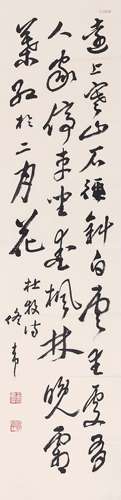 遠上寒山石徑斜白雲生處有
人家停車坐愛楓林晚霜
葉紅於二月花
杜牧詩